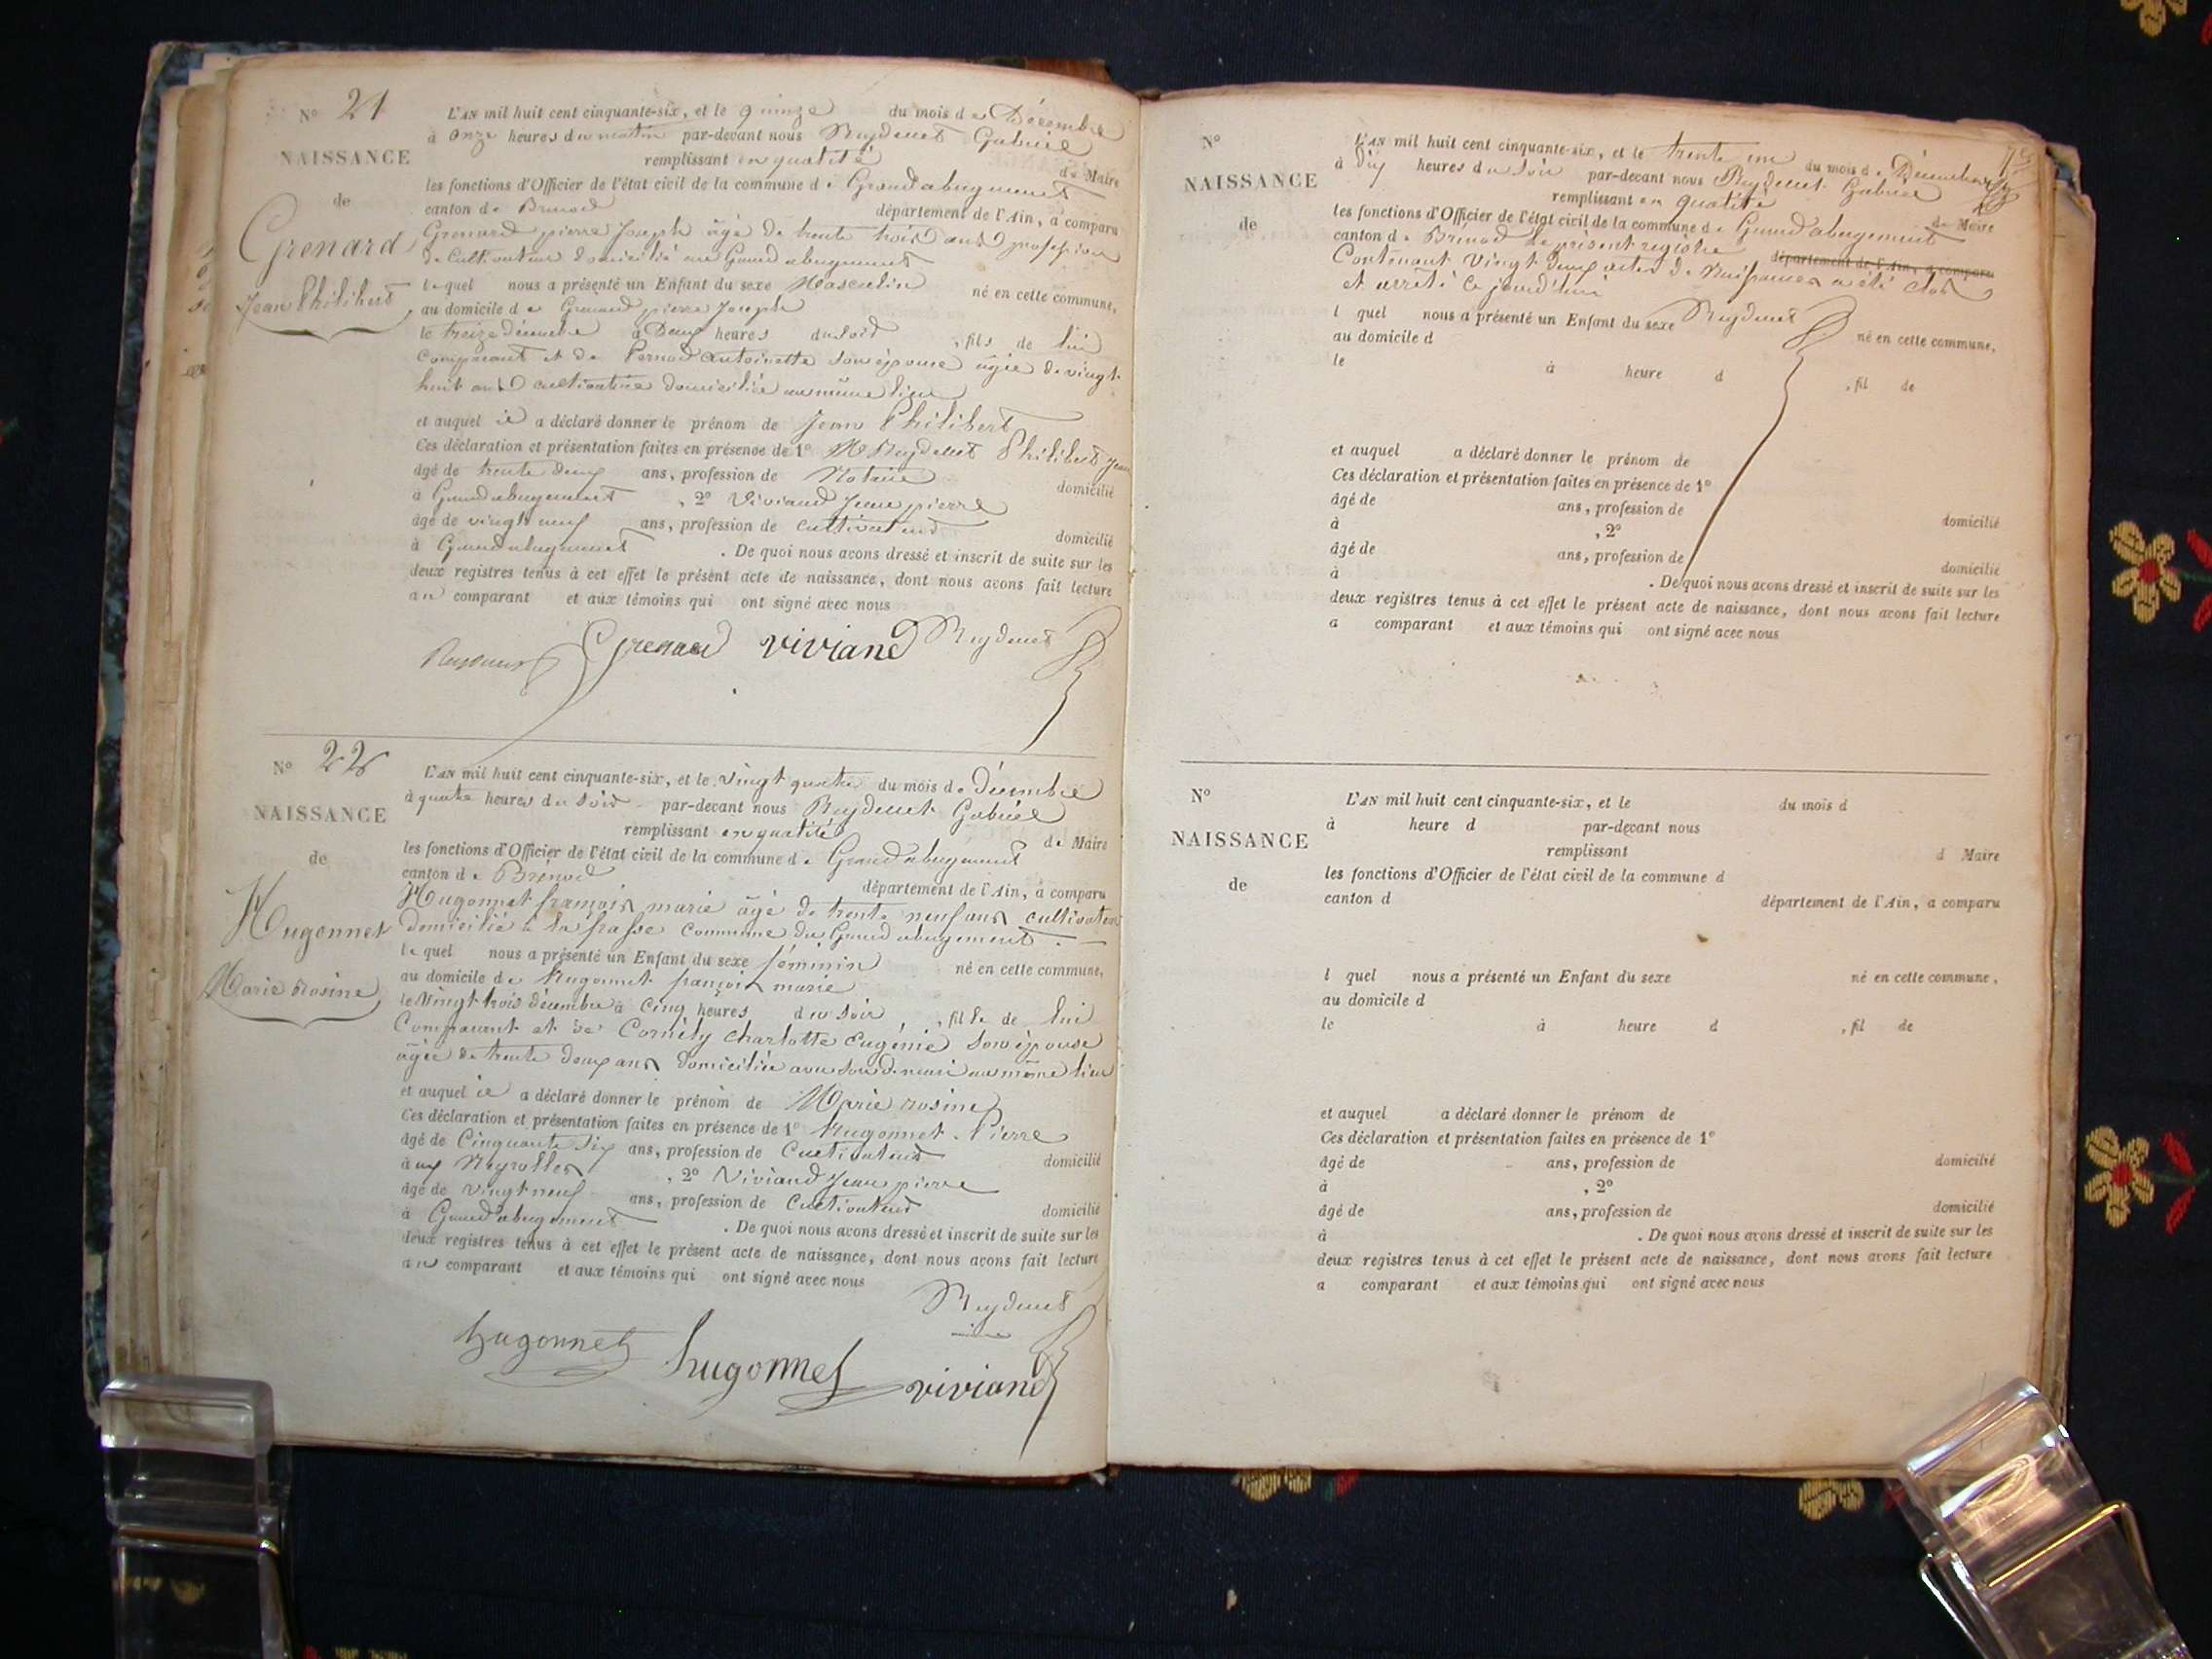 N° 21
NAISSANCE
de
Grenard
Jean Philibert
L'AN mil huit cent cinquante-six, et le quinze du mois de Décembre
à onze heures du matin par-devant nous Reydellet Gabriel
remplissant en qualité de Maire
les fonctions d'Officier de l'état civil de la commune de Grand abergement
canton de Brénod département de l'Ain, a comparu
Grenard pierre Joseph âgé de trente trois ans profession
de Cultivateur domicilié au Grand abergement
lequel nous a présenté un Enfant du sexe Masculin né en cette commune,
au domicile de Grenard pierre Joseph
le treize décembre à Deux heures du soir , fils de lui
comparant et de Pernod antoinette son épouse âgée de vingt
huit ans cultivatrice domiciliée au même lieu
et auquel il a déclaré donner le prénom de Jean Philibert
Ces déclaration et présentation faites en présence de 1° M Reydellet Philibert Jean
âgé de trente deux ans, profession de Notaire domicilié
à Grand abergement , 2° Viviand Jean pierre
âgé de vingt neuf ans, profession de cultivateur domicilié
à Grand abergement . De quoi nous avons dressé et inscrit de suite sur les
deux registres tenus à cet effet le présent acte de naissance, dont nous avons fait lecture
au comparant et aux témoins qui ont signé avec nous
Grenard viviand Reydellet
N° 22
NAISSANCE
de
Hugonnet
Marie rosine
L'AN mil huit cent cinquante-six, et le vingt quatre du mois de décembre
à quatre heures du soir par-devant nous Reydellet Gabriel
remplissant en qualité de Maire
les fonctions d'Officier de l'état civil de la commune de Grand abergement
canton de Brénod département de l'Ain, a comparu
Hugonnet françois marie âgé de trente neuf ans cultivateur
domicilié à la frasse commune du Grand abergement
lequel nous a présenté un Enfant du sexe féminin né en cette commune,
au domicile de Hugonnet françois marie
le vingt trois décembre à cinq heures du soir , fille de lui
Comparant et de Cornély charlotte Eugénie son épouse
âgée de trente deux ans domiciliée avec son d. mari au même lieu
et auquel il a déclaré donner le prénom de Marie rosine
Ces déclaration et présentation faites en présence de 1° Hugonnet Pierre
âgé de Cinquante six ans, profession de Cultivateur domicilié
aux Neyrolles , 2° Viviand Jean pierre
âgé de vingt neuf ans, profession de Cultivateur domicilié
à Grand abergement . De quoi nous avons dressé et inscrit de suite sur les
deux registres tenus à cet effet le présent acte de naissance, dont nous avons fait lecture
au comparant et aux témoins qui ont signé avec nous
Reydellet
hugonnet hugonnet viviand
N°
NAISSANCE
de
L'AN mil huit cent cinquante-six, et le trente un du mois de Décembre
à Dix heures du soir par-devant nous Reydellet Gabriel
remplissant en qualité de Maire
les fonctions d'Officier de l'état civil de la commune de Grand abergement
canton de Brénod le présent registre département de l'Ain, a comparu
Contenant vingt deux actes de Naissances a été clos
et arrêté ce jourd'hui
l quel nous a présenté un Enfant du sexe Reydellet né en cette commune,
au domicile d
le à heure d , fil de
et auquel a déclaré donner le prénom de
Ces déclaration et présentation faites en présence de 1°
âgé de ans, profession de domicilié
à , 2°
âgé de ans, profession de domicilié
à . De quoi nous avons dressé et inscrit de suite sur les
deux registres tenus à cet effet le présent acte de naissance, dont nous avons fait lecture
a comparant et aux témoins qui ont signé avec nous
N°
NAISSANCE
de
L'AN mil huit cent cinquante-six, et le du mois d
à heure d par-devant nous
remplissant d Maire
les fonctions d'Officier de l'état civil de la commune d
canton d département de l'Ain, a comparu
l quel nous a présenté un Enfant du sexe né en cette commune,
au domicile d
le à heure d , fil de
et auquel a déclaré donner le prénom de
Ces déclaration et présentation faites en présence de 1°
âgé de ans, profession de domicilié
à , 2°
âgé de ans, profession de domicilié
à . De quoi nous avons dressé et inscrit de suite sur les
deux registres tenus à cet effet le présent acte de naissance, dont nous avons fait lecture
a comparant et aux témoins qui ont signé avec nous